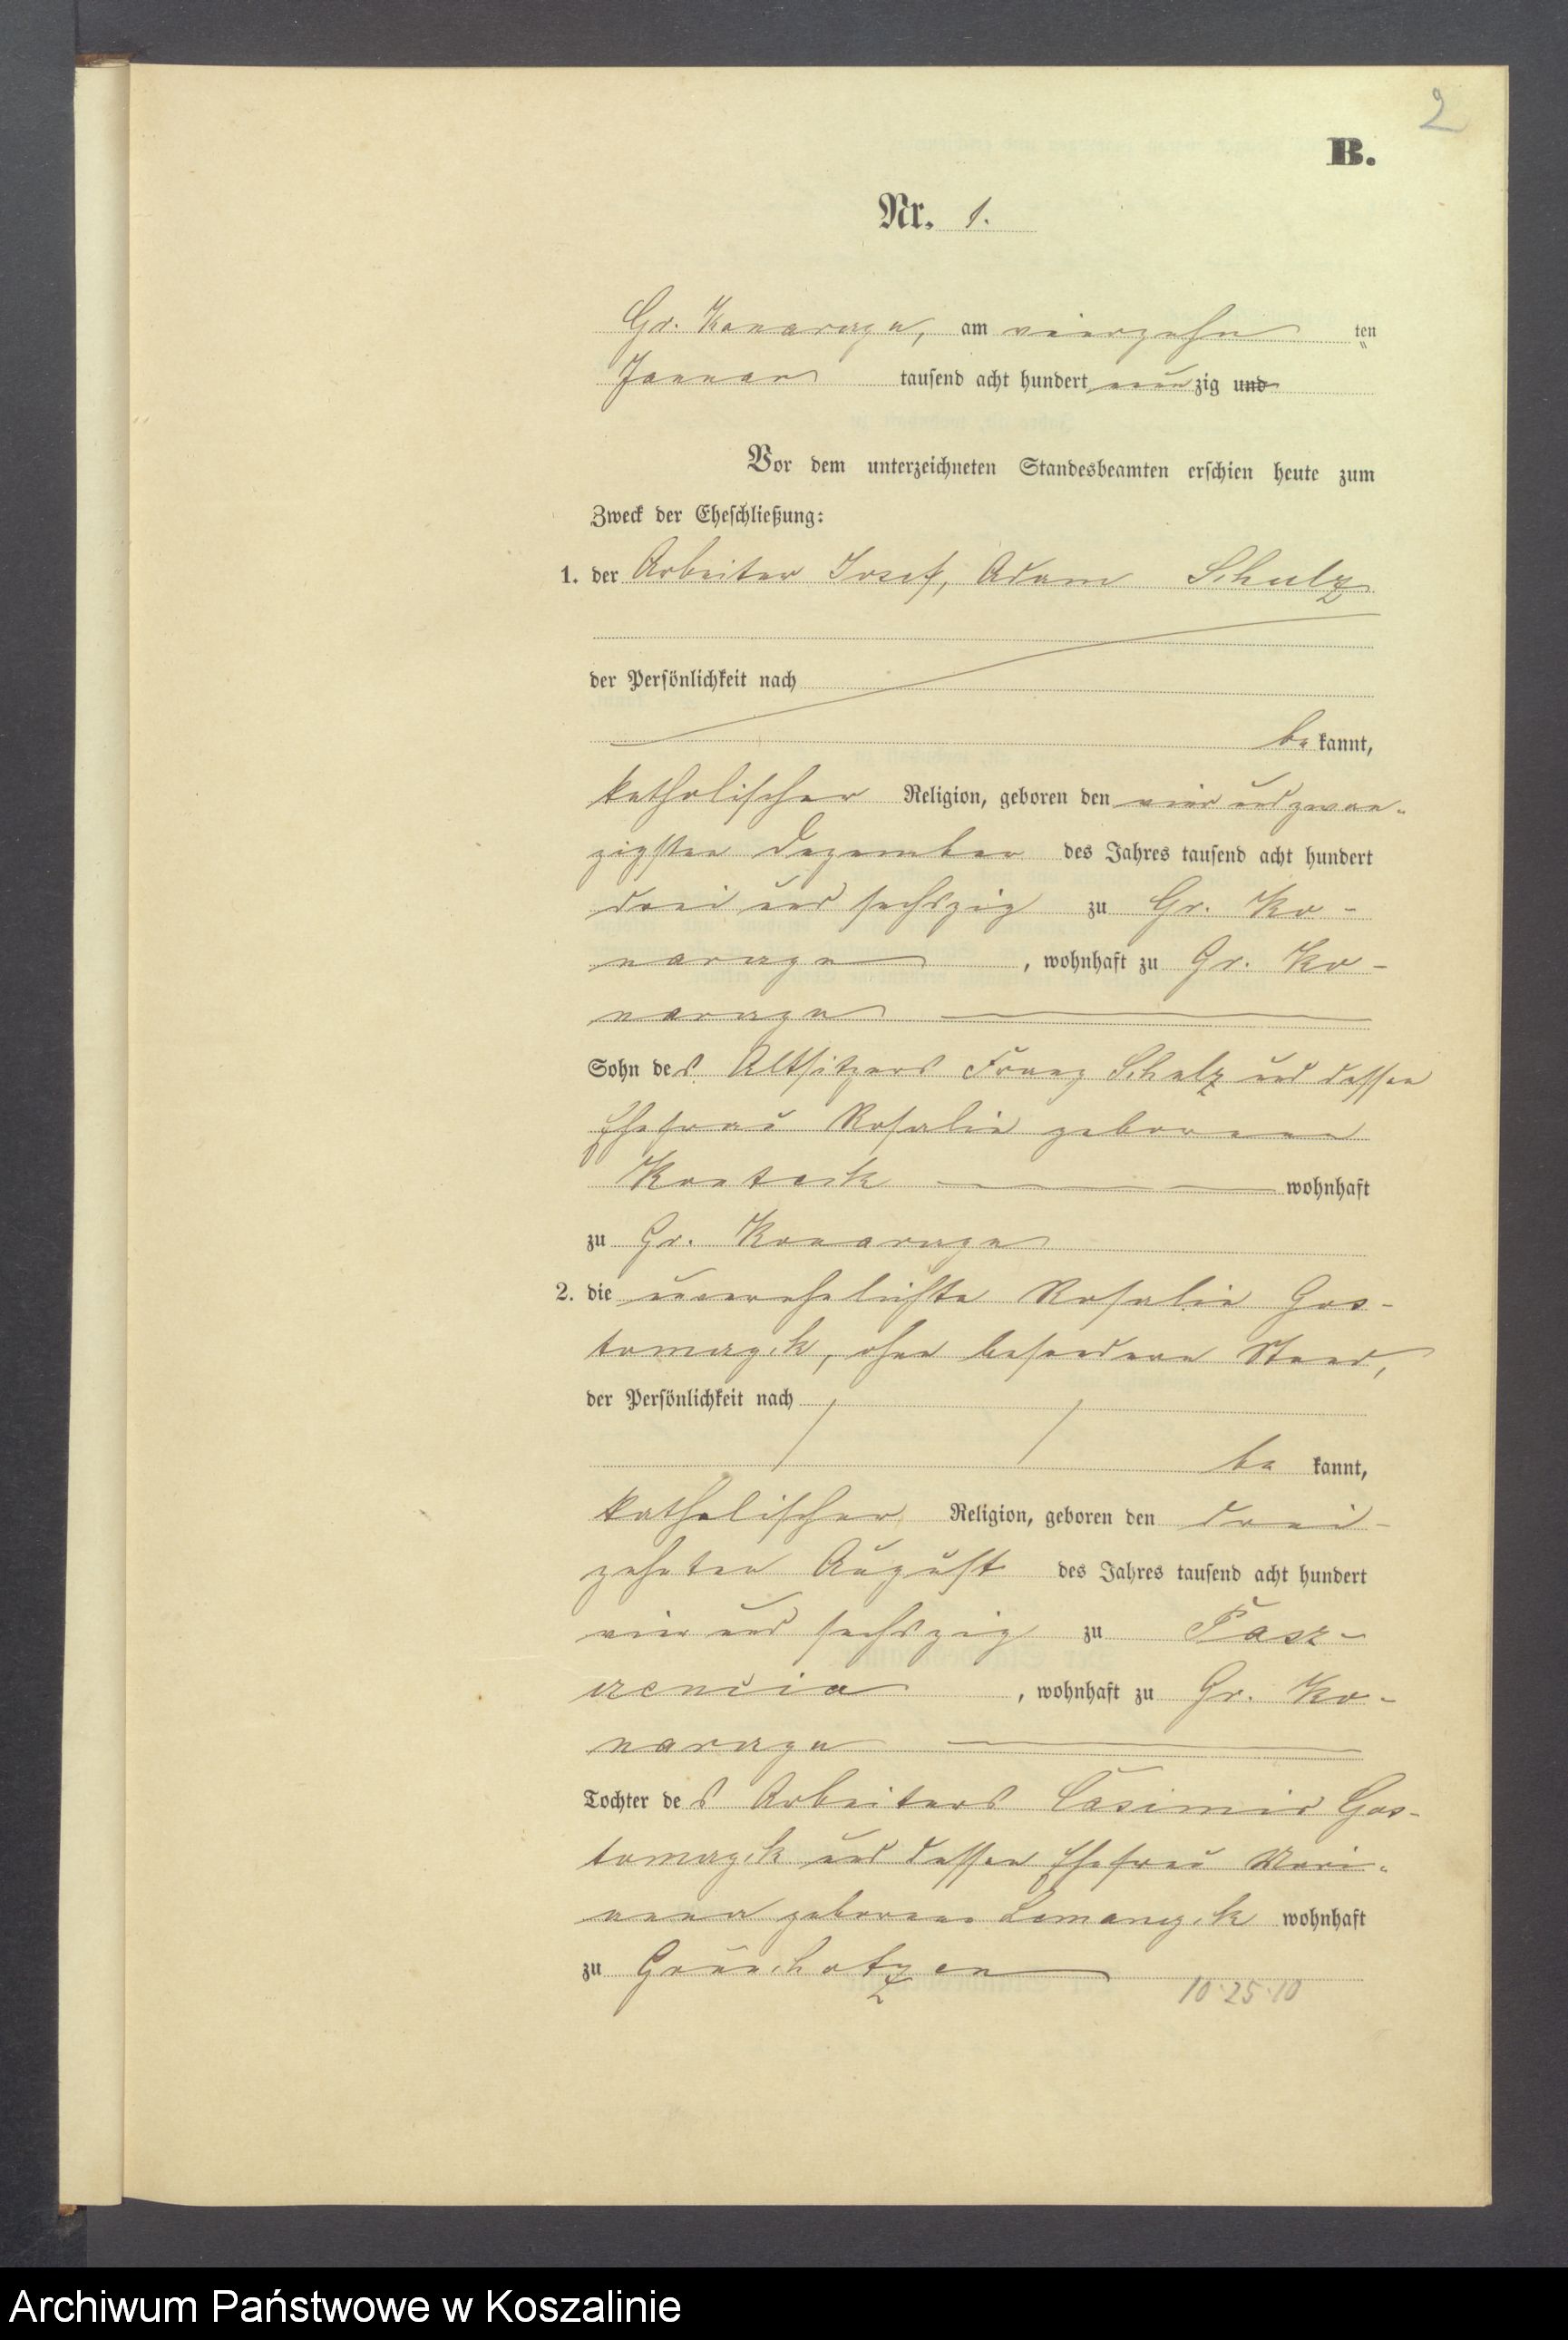 2
B.
Nr. 1.
Gr. Konarczyn, am vierzehn ten
Januar tausend acht hundert neunzig und
Vor dem unterzeichneten Standesbeamten erschien heute zum
Zweck der Eheschließung:
1. der Arbeiter Josef, Adam Schulz
der Persönlichkeit nach
be kannt,
katholischer Religion, geboren den vier und zwan-
zigsten Dezember des Jahres tausend acht hundert
drei und sechszig zu Gr. Ko-
narczyn, wohnhaft zu Gr. Ko-
narczyn
Sohn des Altsitzers Franz Schulz und dessen
Ehefrau Rosalie geborenen
wohnhaft
zu Gr. Konarczyn
2. die unverehelichte Rosalie Gos-
tomczyk, ohne besonderen Stand,
der Persönlichkeit nach
be kannt,
katholischer Religion, geboren den drei-
zehnten August des Jahres tausend acht hundert
vier und sechszig zu
, wohnhaft zu Gr. Ko-
narczyn
Tochter des Arbeiters Casimir Gos-
tomczyk und dessen Ehefrau Mari-
anna geborenen Lemanczyk wohnhaft
zu Grünchotzen
10·25·10
Archiwum Państwowe w Koszalinie